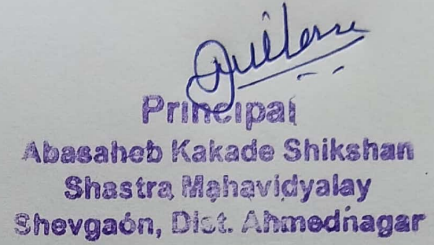 Principal
Abasaheb Kakade Shikshan
Shastra Mahavidyalay
Shevgaon, Dist. Ahmednagar